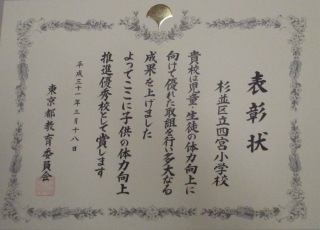 表彰状
杉並区立四宮小学校
貴校は児童・生徒の体力向上に
向けて優れた取組を行い多大なる
成果を上げました
よってここに子供の体力向上
推進優秀校として賞します
平成三十一年二月十八日
東京都教育委員会